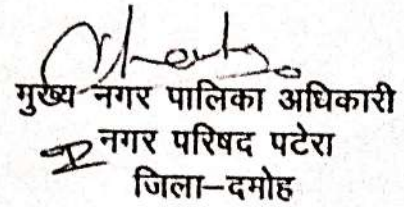 मुख्य नगर पालिका अधिकारी
नगर परिषद पटेरा
जिला–दमोह